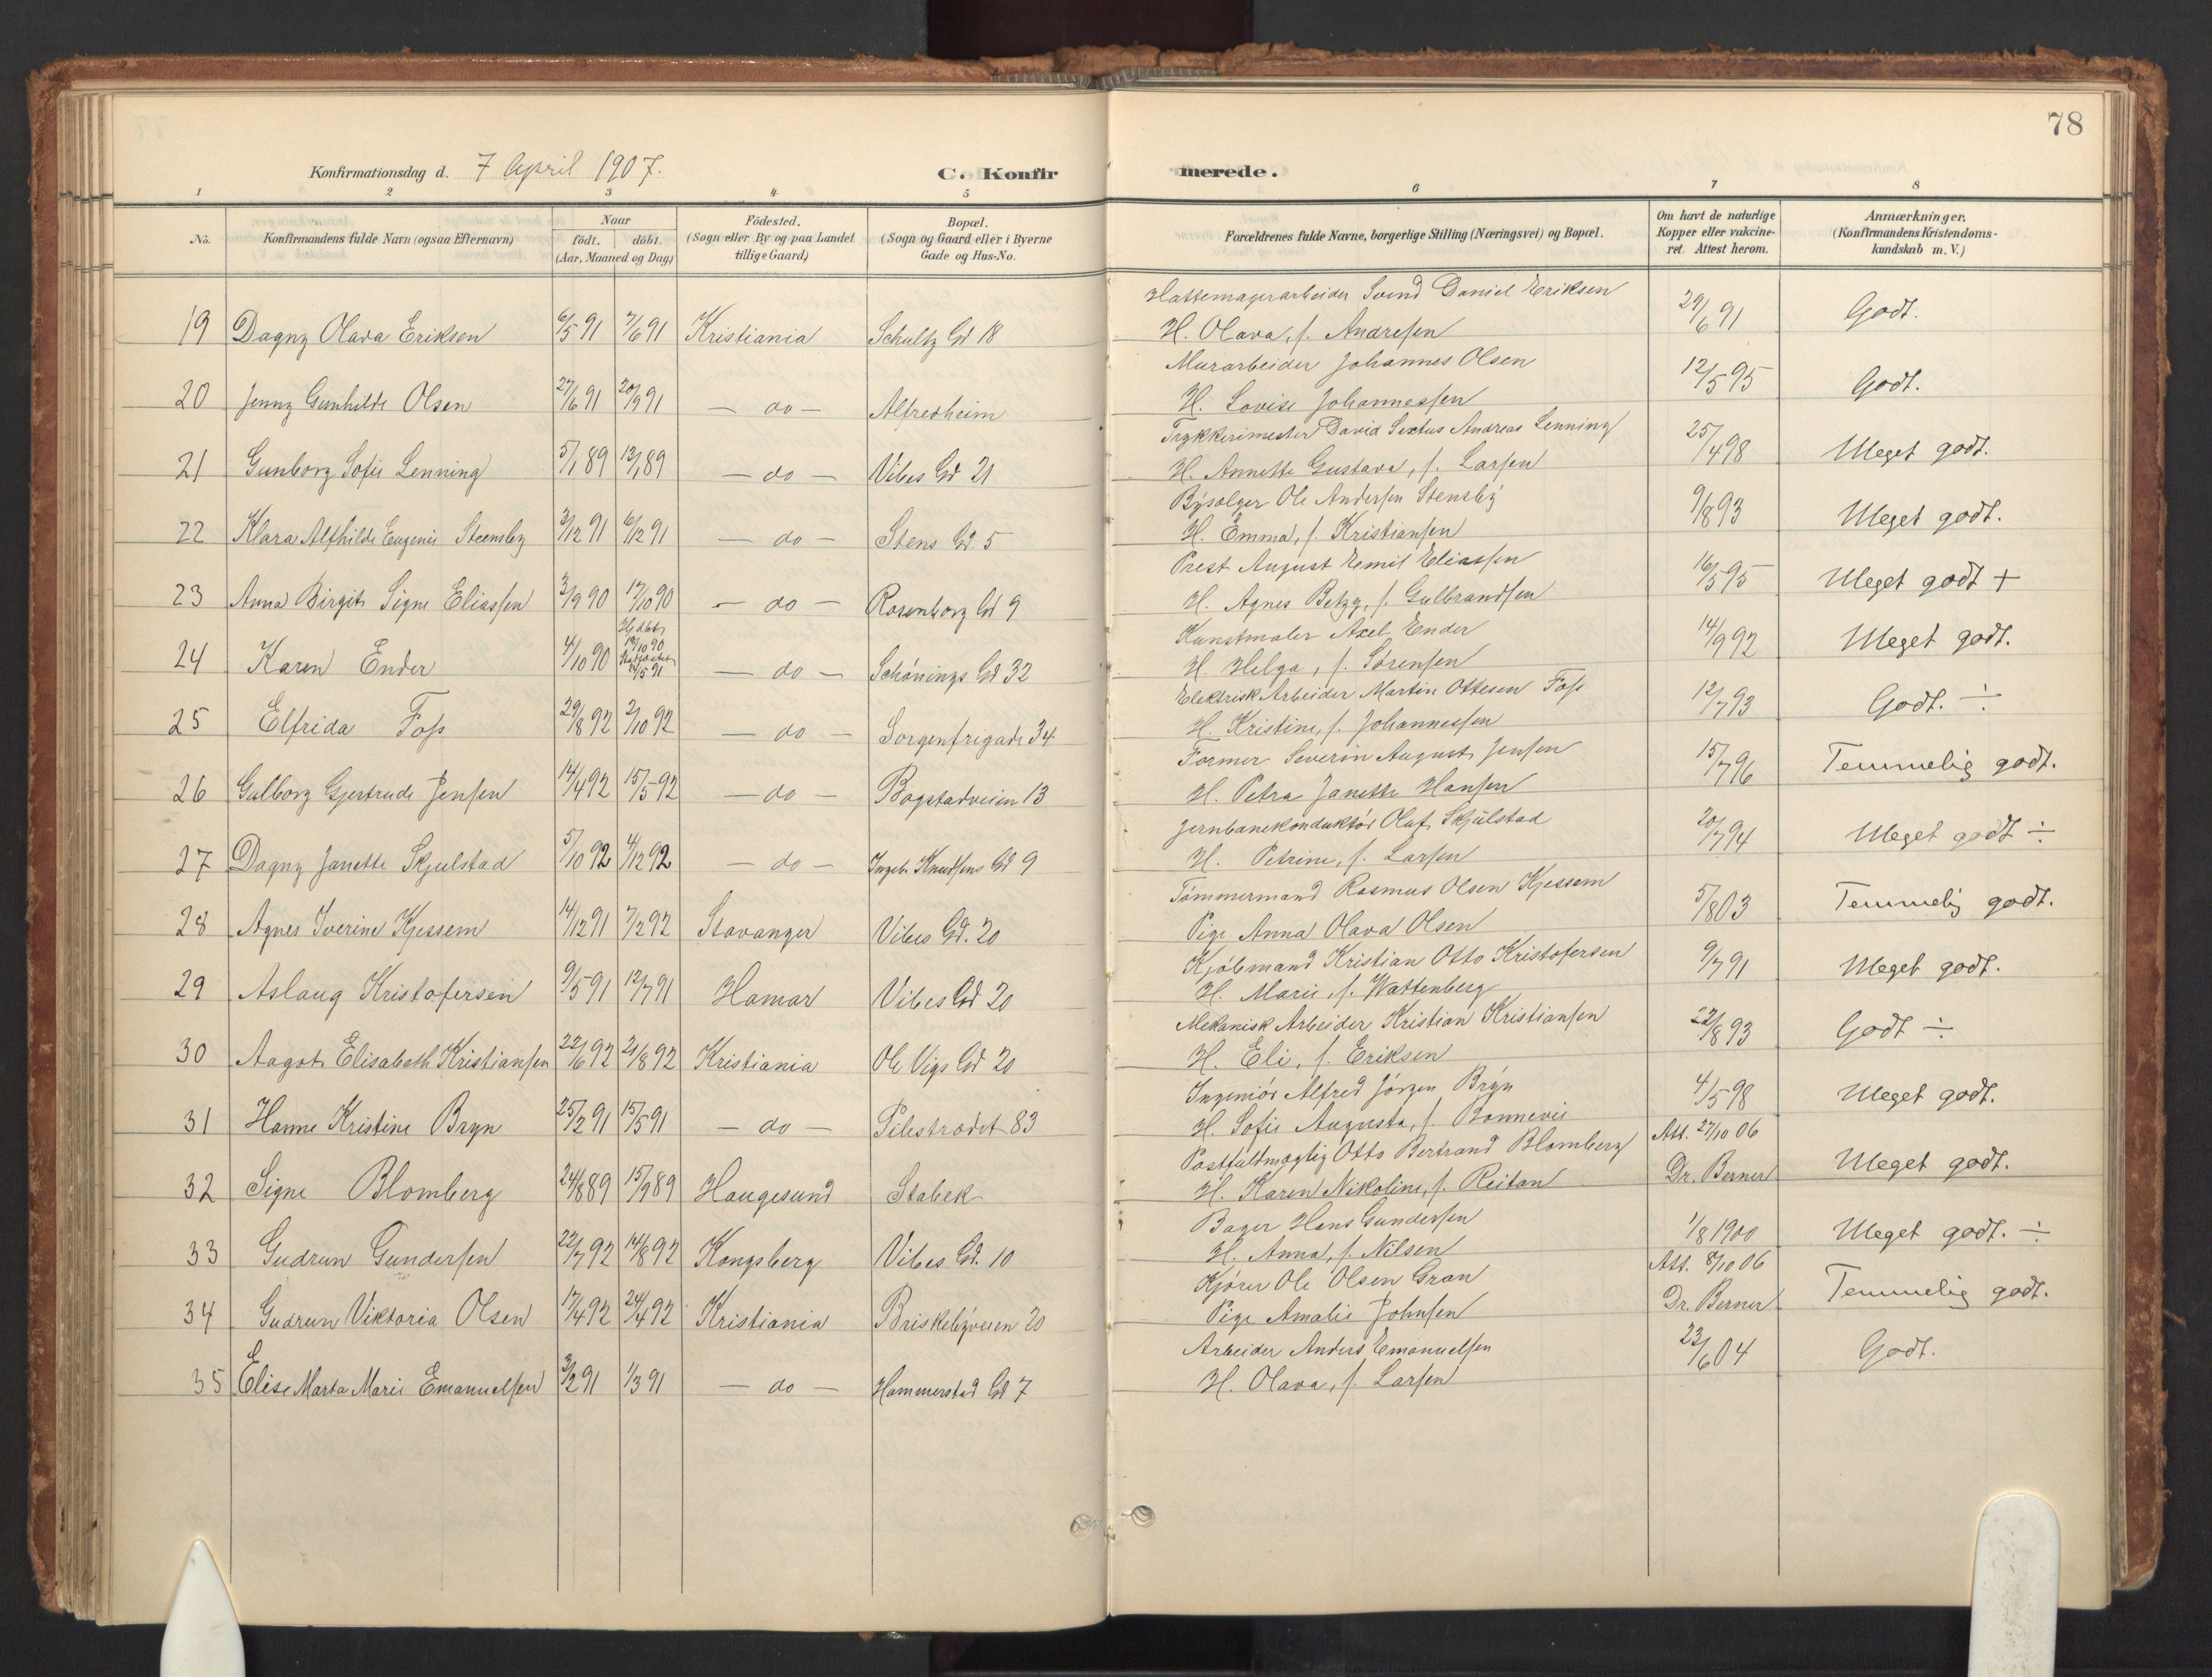 78
Konfirmationsdag d. 7 April 1907.
C. Konfirmerede.
1 2 3 4 5 6 7 8
No.
Konfirmandens fulde Navn (ogsaa Efternavn)
Naar
födt. döbt.
(Aar, Maaned og Dag)
Födested.
(Sogn eller By og paa Landet
tillige Gaard)
Bopæl.
(Sogn og Gaard eller i Byerne
Gade og Hus-No.
Forældrenes fulde Navne, borgerlige Stilling (Næringsvei) og Bopæl.
Om havt de naturlige
Kopper eller vakcine-
ret. Attest herom.
Anmærkninger,
(Konfirmandens Kristendoms-
kundskab m. V.)
Hattemagerarbeider Svend Daniel Eriksen
19 Dagny Olava Eriksen 6/5 91 7/6 91 Kristiania Schultz Gd 18 H. Olava, f. Andresen 29/6 91 Godt.
Murarbeider Johannes Olsen
20 Jenny Gunhilde Olsen 27/6 91 20/9 91 — do — Alfredheim H. Lovise Johannessen 12/5 95 Godt.
Trykkerimester David Sextus Andreas Lenning
21 Gunborg Sofie Lenning 5/1 89 13/1 89 — do — Vibes Gd 21 H. Annette Gustava, f. Larsen 25/4 98 Meget godt.
Bysælger Ole Andersen Stensby
22 Klara Alfhilde Eugenie Steensby 3/12 91 6/12 91 — do — Stens Gd. 5 H. Emma, f. Kristiansen 9/8 93 Meget godt.
Prest August Emil Eliassen
23 Anna Birgit Signe Eliassen 3/9 90 17/10 90 — do — Rosenborg Gd 9 H. Agnes Betzy, f. Gulbrandsen 16/5 95 Meget godt +
Kunstmaler Axel Ender
24 Karen Ender 4/10 90 Hjdøbt 12/10 90 Stadfæstet 24/5 91 — do — Schönings Gd 32 H. Helga, f. Sørensen 14/9 92 Meget godt.
Elektrisk Arbeider Martin Ottesen Foss
25 Elfrida Foss 29/8 92 2/10 92 — do — Sorgenfrigade 34 H. Kristine, f. Johannessen 12/7 93 Godt. ÷
Former Severin August Jensen
26 Gulborg Gjertrude Jensen 14/4 92 15/5 92 — do — Bogstadveien 13 H. Petra Janette Hansen 15/7 96 Temmelig godt.
Jernbanekonduktör Olaf Skjülstad
27 Dagny Janette Skjulstad 5/10 92 4/12 92 — do — Ingeb. Knudsens Gd 9 H. Petrine, f. Larsen 20/7 94 Meget godt ÷
Tömmermand Rasmus Olsen Kjessem
28 Agnes Iverine Kjessem 14/12 91 7/2 92 Stavanger Vibes Gd. 20 Pige Anna Olava Olsen 5/8 03 Temmelig godt.
Kjöbmand Kristian Otto Kristofersen
29 Aslaug Kristofersen 9/5 91 12/7 91 Hamar Vibes Gd 20 H. Marie, f. Wattenberg 9/7 91 Meget godt.
Mekanisk Arbeider Kristian Kristiansen
30 Aagot Elisabeth Kristiansen 22/6 92 21/8 92 Kristiania Ole Vigs Gd 20 H. Eli, f. Eriksen 22/8 93 Godt ÷
Ingeniör Alfred Jörgen Bryn
31 Hanne Kristine Bryn 25/2 91 15/5 91 — do — Pilestrædet 83 H. Sofie Augusta, f. Bonnevie 4/5 98 Meget godt.
Postfuldmægtig Otto Bertrand Blomberg Att. 27/10 06
32 Signe Blomberg 24/8 89 15/9 89 Haugesund Stabek H. Karen Nikoline, f. Reitan Dr. Berner Meget godt.
Bager Hans Gundersen
33 Gudrun Gundersen 22/7 92 14/8 92 Kongsberg Vibes Gd. 10 H. Anna, f. Nilsen 1/8 1900 Meget godt. ÷
Kjörer Ole Olsen Gran Att. 8/10 06
34 Gudrun Viktoria Olsen 17/4 92 24/4 92 Kristiania Briskebyveien 20 Pige Amalie Johnsen Dr. Berner Temmelig godt.
Arbeider Anders Emanuelsen
35 Elise Marta Marie Emanuelsen 3/2 91 1/3 91 — do — Hammerstad Gd 7 H. Olava, f. Larsen 23/6 04 Godt.